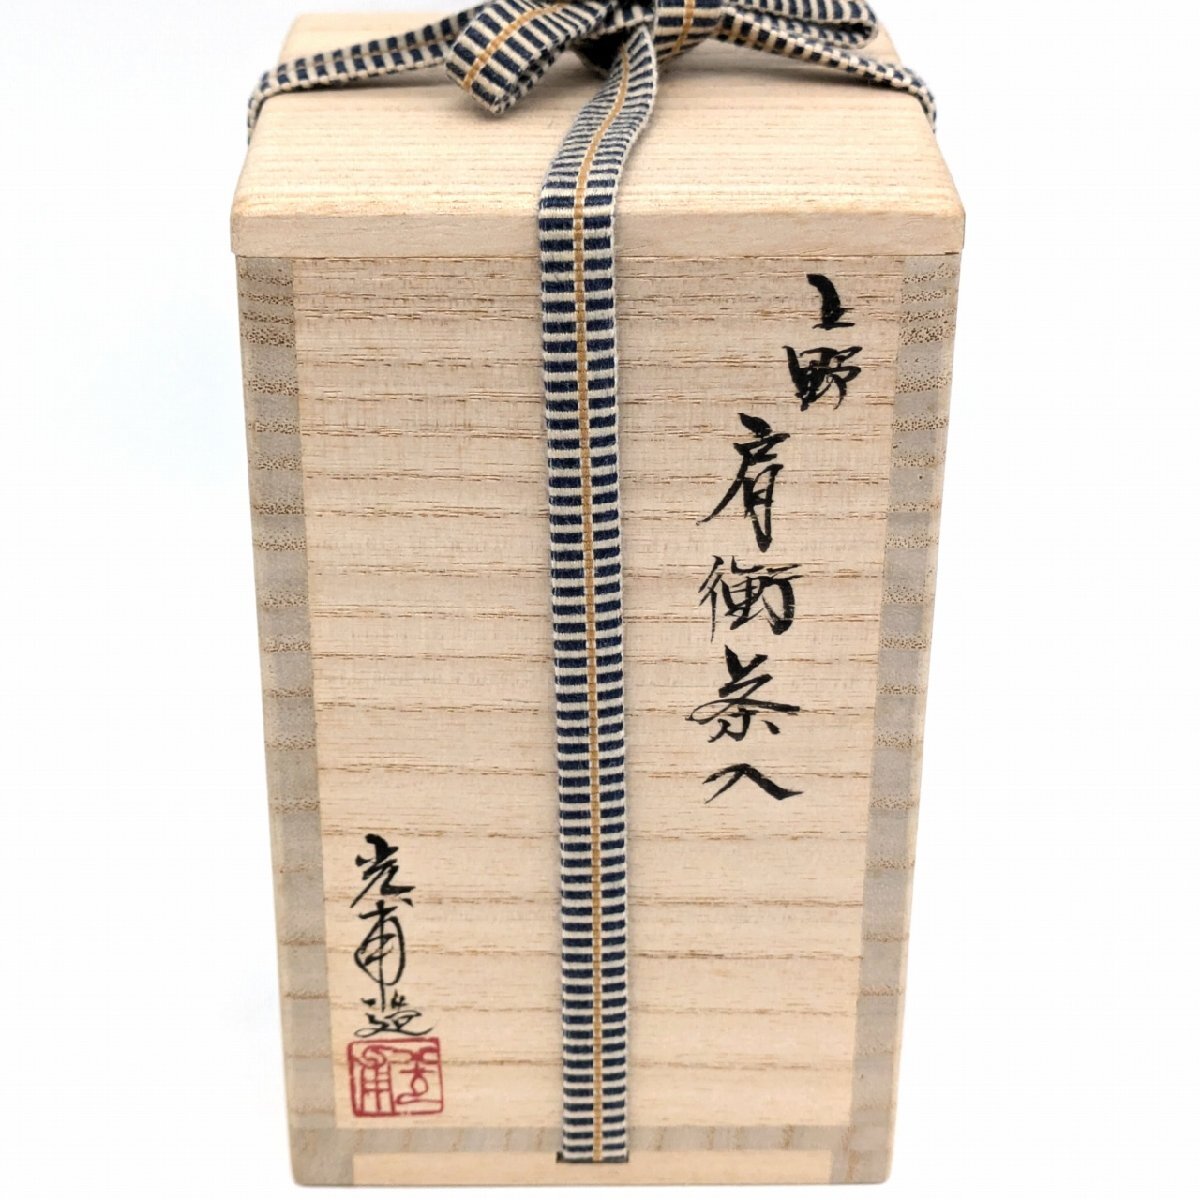 上野
肩衝茶入
光甫造
光甫